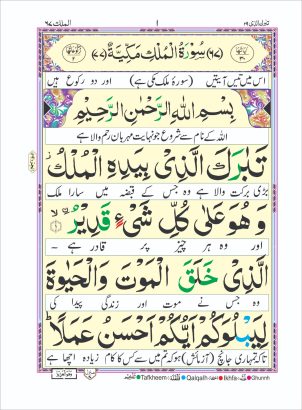 الملك ٦٧
١
تبٰرك الذی ٢٩
(٦٧) سُوْرَةُ الْمُلْكِ مَكِّيَّةٌ (٧٧)
اس میں تیس آیتیں (سورۂ ملک مکی ہے) اور دو رکوع ہیں
بِسْمِ اللّٰهِ الرَّحْمٰنِ الرَّحِيْمِ
اللہ کے نام سے شروع جو نہایت مہربان رحم والا ہے
تَبٰرَكَ الَّذِيْ بِيَدِهِ الْمُلْكُ
بڑی برکت والا ہے وہ جس کے قبضہ میں سارا ملک
وَهُوَ عَلٰى كُلِّ شَيْءٍ قَدِيْرٌ
اور وہ ہر چیز پر قادر ہے
الَّذِيْ خَلَقَ الْمَوْتَ وَالْحَيٰوةَ
وہ جس نے موت اور زندگی پیدا کی
لِيَبْلُوَكُمْ اَيُّكُمْ اَحْسَنُ عَمَلًا ؕ
تاکہ تمہاری جانچ (آزمائش) ہو کہ تم میں سے کس کا کام زیادہ اچھا ہے
Tafkheem Qalqalh Ikhfa Ghunnh